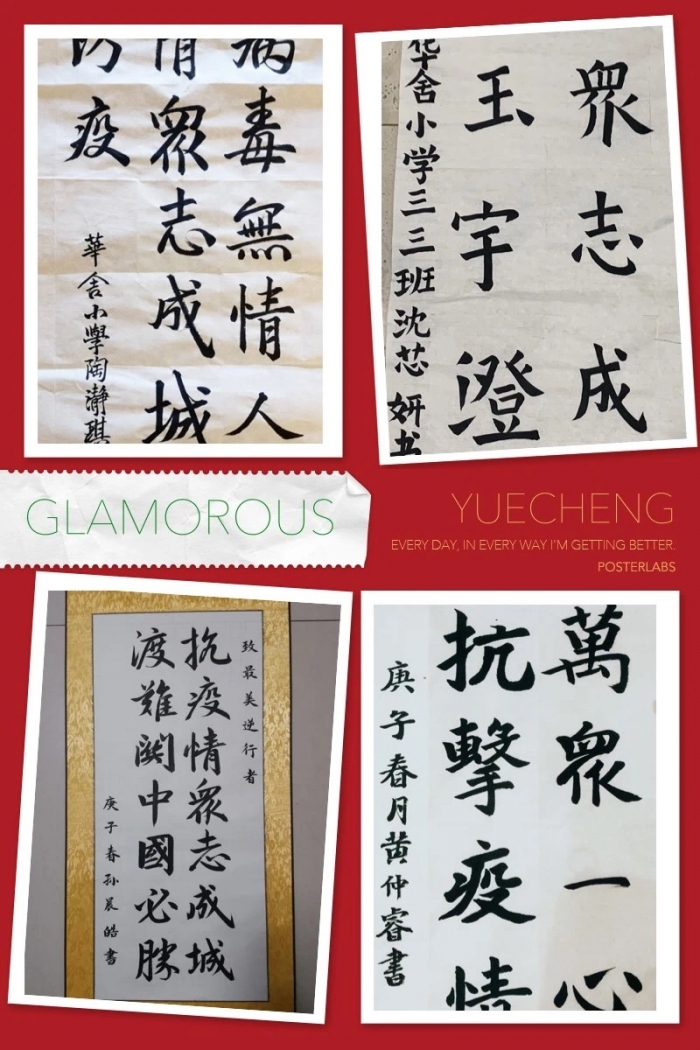 病毒無情人
情衆志成城
防疫
華舍小學陶瀞琪
衆志成
玉宇澄
华舍小学三三班沈芯妍书
GLAMOROUS
YUECHENG
EVERY DAY, IN EVERY WAY I'M GETTING BETTER.
POSTERLABS
致最美逆行者
抗疫情衆志成城
渡難関中國必勝
庚子春孙晨皓書
萬衆一心
抗擊疫情
庚子春月黄仲睿書